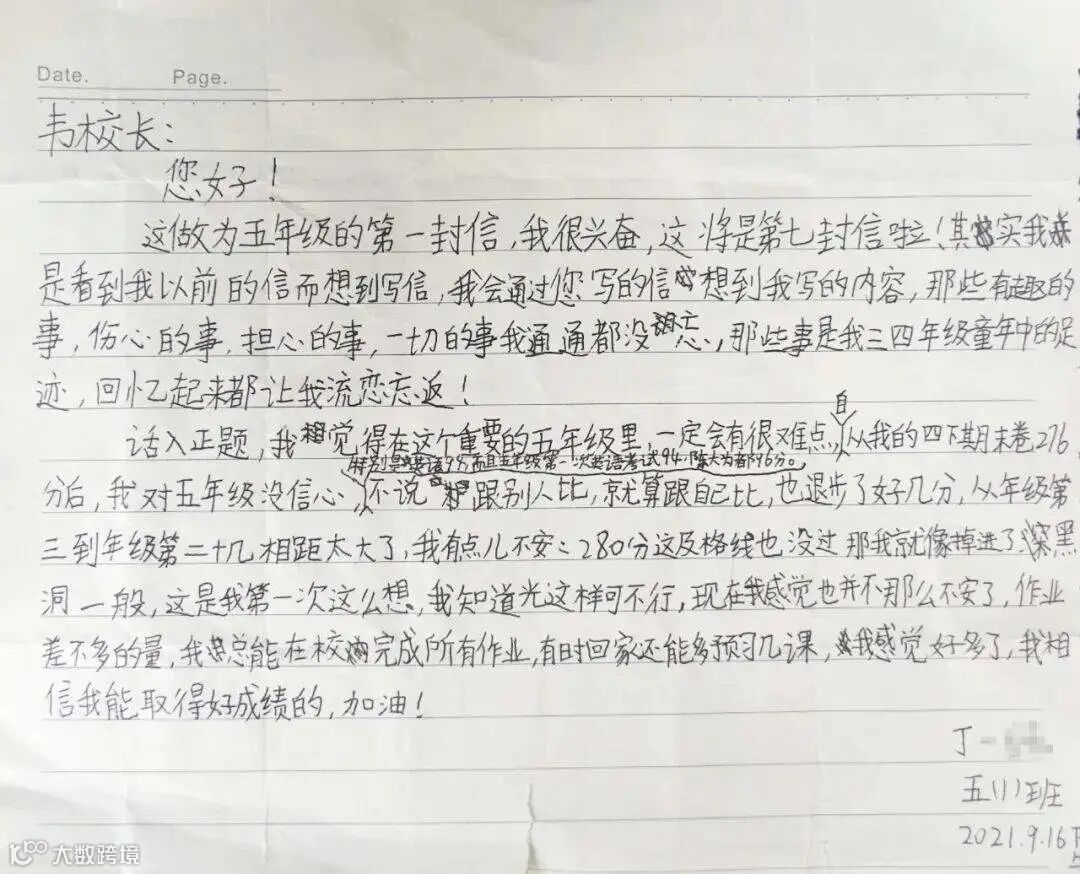 Date. Page.
韦校长:
您好!
这做为五年级的第一封信,我很兴奋,这将是第七封信啦!其实我
是看到我以前的信而想到写信,我会通过您写的信想到我写的内容,那些有趣的
事,伤心的事,担心的事,一切的事我通通都没忘,那些事是我三四年级童年中的足
迹,回忆起来都让我流恋忘返!
自
话入正题,我觉得在这个重要的五年级里,一定会有很难点,从我的四下期末卷276
特别是英语93,而且五年级第一次英语考试94,陈大为都96分。
分后,我对五年级没信心,不说跟别人比,就算跟自己比,也退步了好几分,从年级第
三到年级第二十几相距太大了,我有点儿不安:280分这及格线也没过那我就像掉进了深黑
洞一般,这是我第一次这么想,我知道光这样可不行,现在我感觉也并不那么不安了,作业
差不多的量,我总能在校内完成所有作业,有时回家还能多预习几课,我感觉好多了,我相
信我能取得好成绩的,加油!
丁一
五(1)班
2021.9.16
大数跨境